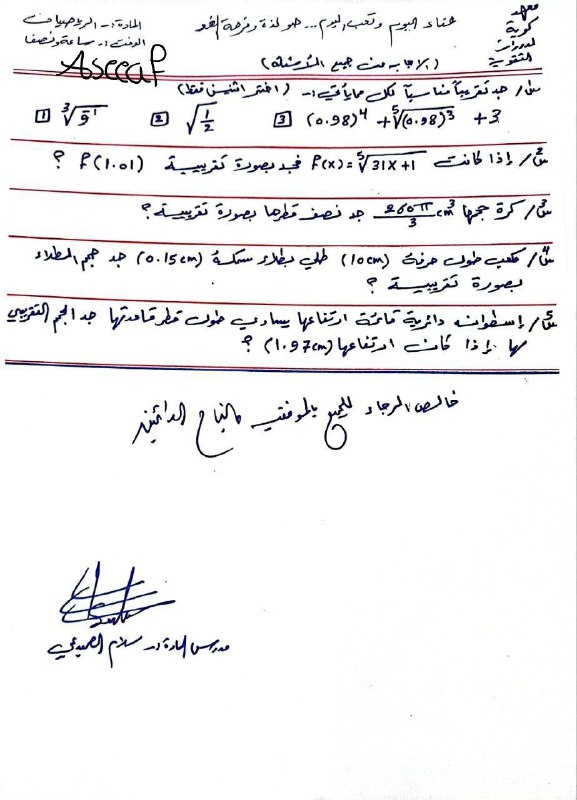 معهد
كورية
للدورات
التقوية
عناء اليوم وتعب اليوم... هو لذة وفرحة الغد
المادة :- الرياضيات
الوقت :- ساعة ونصف
Asceeaf
(الاجابة عن جميع الاسئلة)
س١/ جد تقريباً مناسباً لكل مما يأتي :- (اختر اثنين فقط)
1 ∛9 2 √(1/2) 3 (0.98)⁴ + ⁵√(0.98)³ + 3
س٢/ إذا كانت f(x) = ⁵√31x+1 فجد بصورة تقريبية f(1.01) ؟
س٣/ كرة حجمها 260π/3 cm³ جد نصف قطرها بصورة تقريبية ؟
س٤/ مكعب طول حرفه (10cm) طلي بطلاء سمكه (0.15cm) جد حجم الطلاء
بصورة تقريبية ؟
س٥/ إسطوانه دائرية قائمة ارتفاعها يساوي طول قطر قاعدتها جد الحجم التقريبي
لها إذا كان ارتفاعها (1.97cm) ؟
خالص الرجاء للجميع بالموفقيه والنجاح الدائمين
مدرس المادة :- سلام